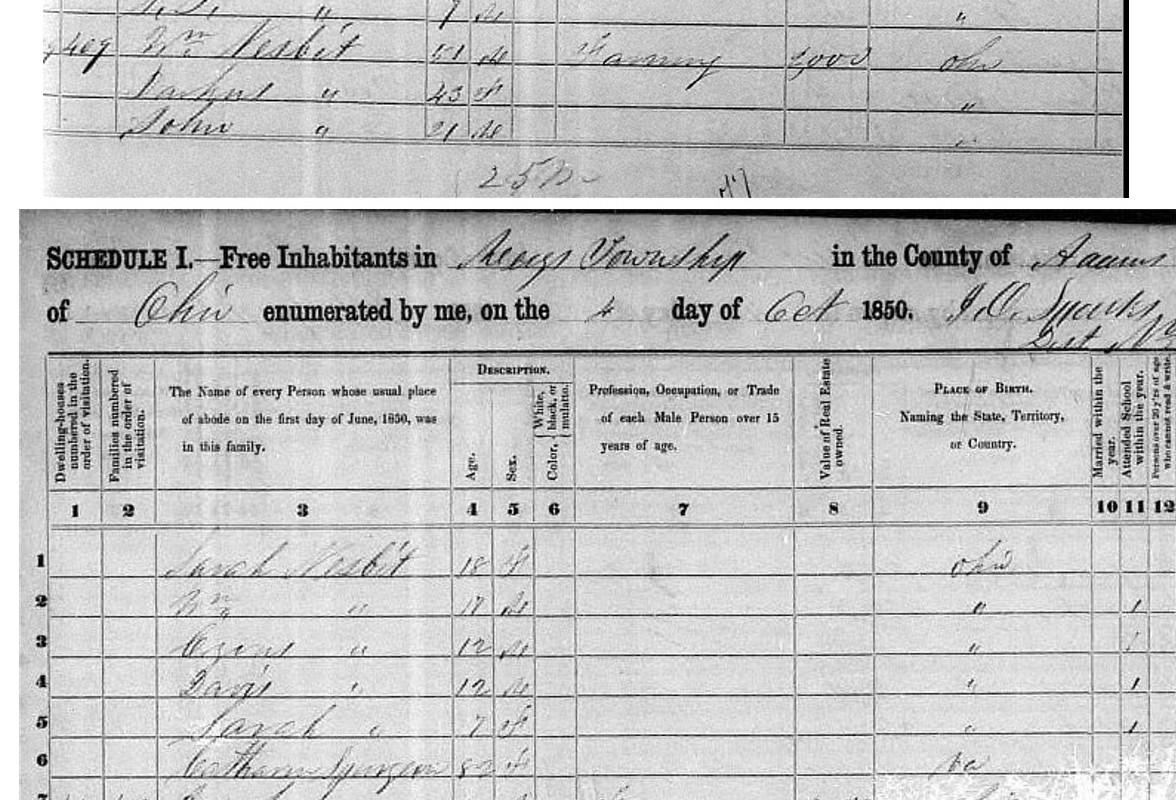 409 Wm Nesbit 51 M Farming 2000 Ohio
" 43 F "
John " 21 M "
SCHEDULE I.—Free Inhabitants in Meigs Township in the County of Adams
of Ohio enumerated by me, on the 4 day of Oct 1850. J. O. Sparks
Dwelling-houses numbered in the order of visitation.
Families numbered in the order of visitation.
The Name of every Person whose usual place
of abode on the first day of June, 1850, was
in this family.
DESCRIPTION.
Age.
Sex.
Color, { White, black, or mulatto.
Profession, Occupation, or Trade
of each Male Person over 15
years of age.
Value of Real Estate owned.
PLACE OF BIRTH.
Naming the State, Territory,
or Country.
Married within the year.
Attended School within the year.
Persons over 20 y'rs of age who cannot read & write.
1 2 3 4 5 6 7 8 9 10 11 12
1 Sarah Nesbit 18 F Ohio
2 Wm " 17 M " 1
3 " 12 M " 1
4 Davis " 12 M " 1
5 Sarah " 7 F " 1
6 Catharine F Pa
7